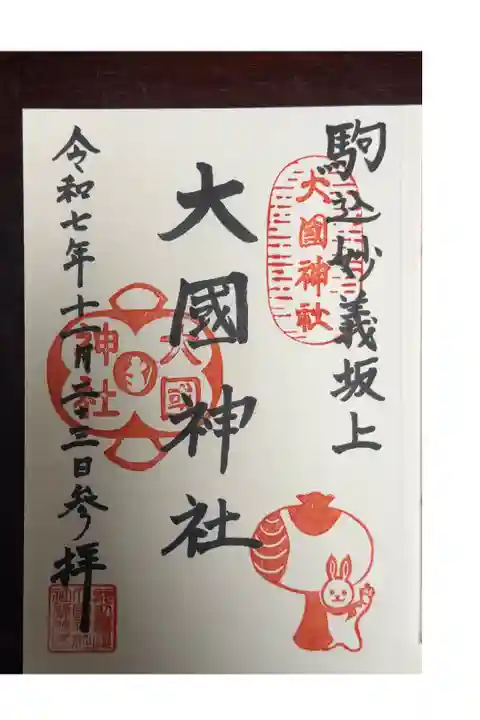 駒込妙義坂上
大國神社
大國神社
大國
神社
令和七年十二月二十三日参拝